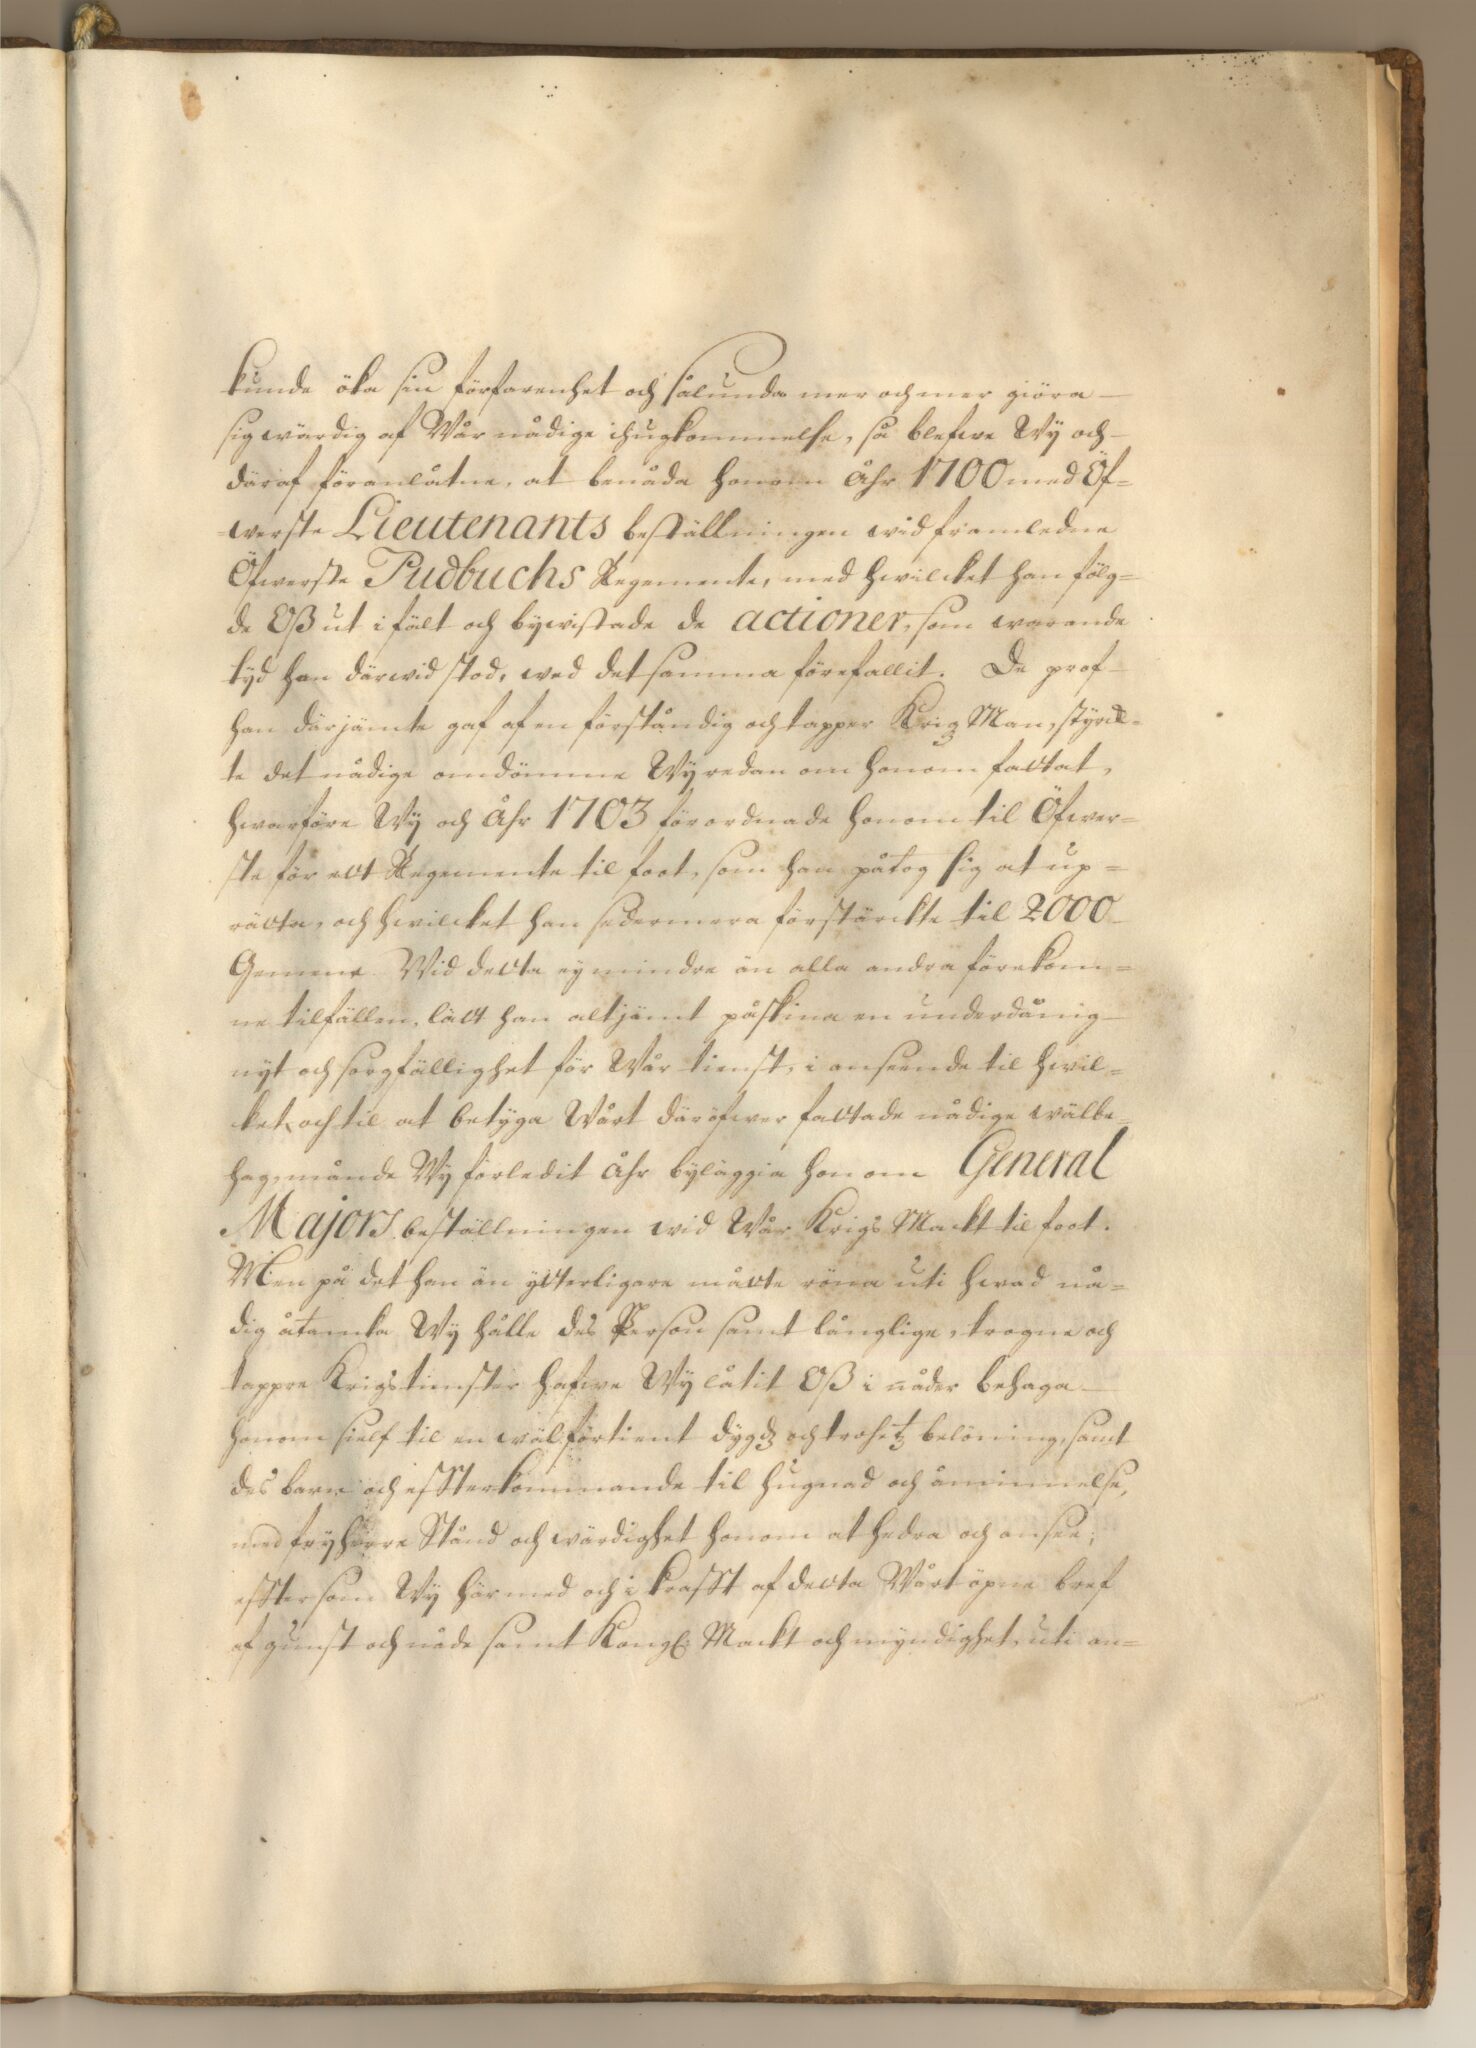 kunde öka sin förfarenhet och sålunda mer och mer giöra
sig wärdig af Wår nådige ihugkommelse, så blefwe Wy och
däraf föranlåtne, at benåda honom Åhr 1700 med Öf=
werste Lieutenants beställningen wid framledne
Öfwerste Pudbuchs Regemente, med hwilcket han fölg=
de Oß ut i fält och bywistade de actioner, som warande
tyd han därwid stod, wed det samma förefallit. De prof
han därjämte gaf af en förståndig och tapper Krigz Man, styrck=
te det nådige omdömme Wy redan om honom fattat,
hwarföre Wy och Åhr 1703 förordnade honom til Öfwer=
ste för ett Regemente til foot, som han påtog sig at up=
rätta, och hwilcket han sedermera förstärckte til 2000
Gemene. Wid detta ey mindre än alla andra förekom=
ne tilfällen, lätt han altjämt påskina en underdånig
nyt och sorgfällighet för Wår tienst, i anseende til hwil=
ket, och til at betyga Wårt däröfwer fattade nådige wälbe=
hag, månde Wy förledit Åhr byläggia honom General
Majors beställningen wid Wår Krigs Mackt til foot.
Men på det han än ytterligare måtte röna uti hwad nå=
dig åtancka Wy hålle des Person samt långlige, trogne och
tappre Krigstienster hafwe Wy låtit Oß i nåder behaga
honom sielf til en wälförtient dygdz och trohetz belöning, samt
des barn och effterkommande til hugnad och åminnelse,
med fryherre Stånd och wärdighet honom at hedra och ansee;
effter som Wy här med och i krafft af detta Wårt öpne bref
af gunst och nåde samt Kongl: Mackt och myndighet, uti an=